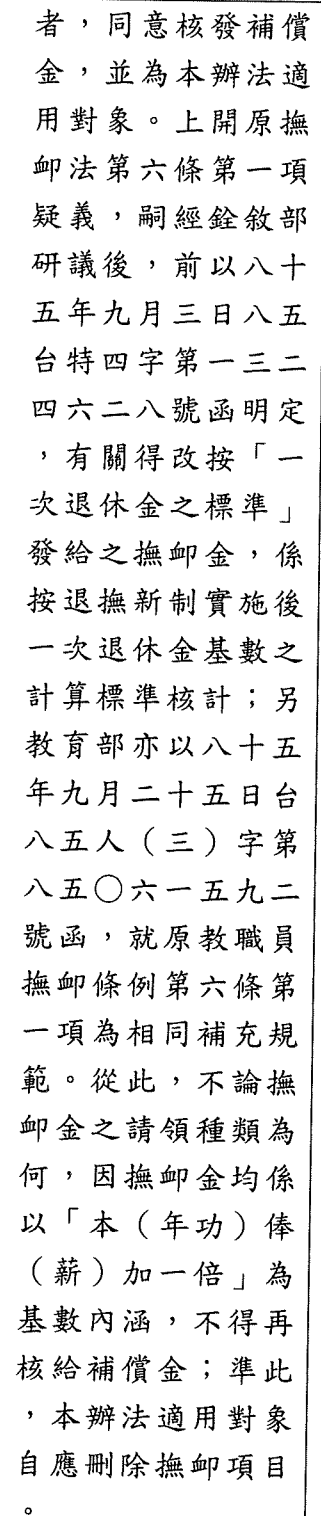 者，同意核發補償
金，並為本辦法適
用對象。上開原撫
卹法第六條第一項
疑義，嗣經銓敘部
研議後，前以八十
五年九月三日八五
台特四字第一三二
四六二八號函明定
，有關得改按「一
次退休金之標準」
發給之撫卹金，係
按退撫新制實施後
一次退休金基數之
計算標準核計；另
教育部亦以八十五
年九月二十五日台
八五人（三）字第
八五○六一五九二
號函，就原教職員
撫卹條例第六條第
一項為相同補充規
範。從此，不論撫
卹金之請領種類為
何，因撫卹金均係
以「本（年功）俸
（薪）加一倍」為
基數內涵，不得再
核給補償金；準此
，本辦法適用對象
自應刪除撫卹項目
。